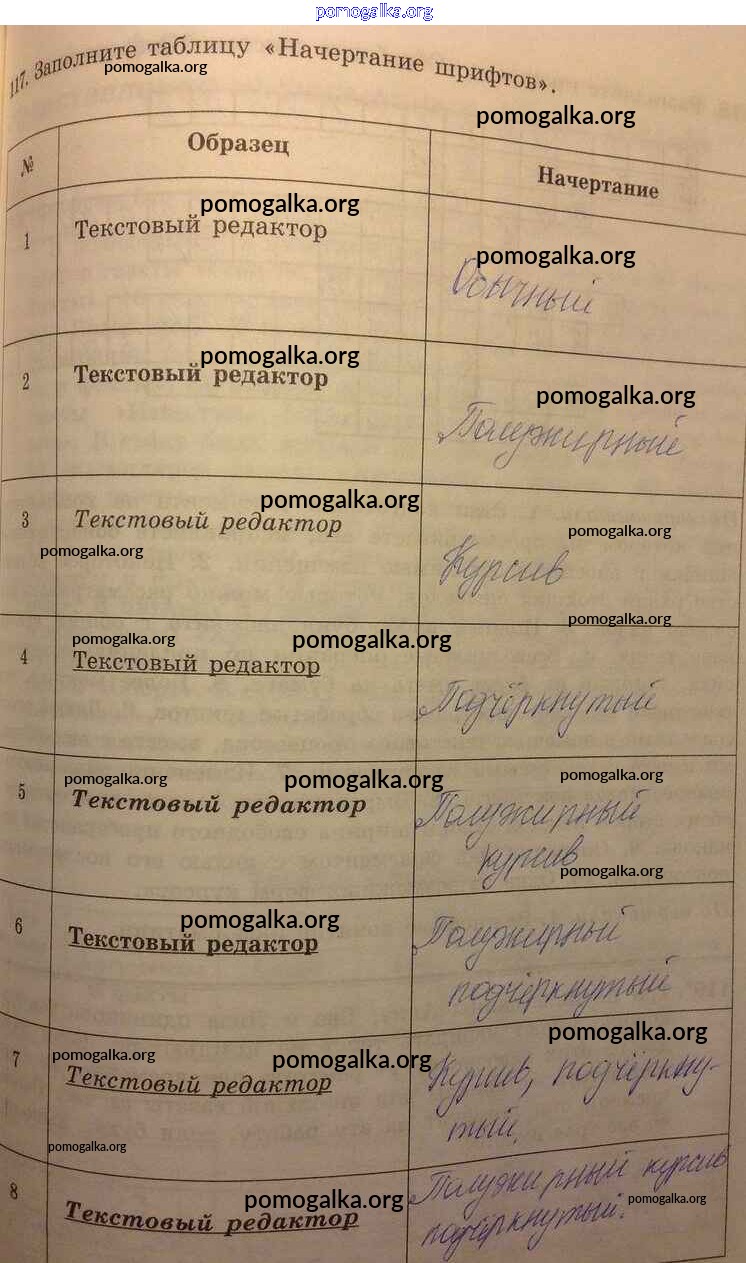 pomogalka.org
117. Заполните таблицу «Начертание шрифтов».
pomogalka.org
pomogalka.org
№
Образец
Начертание
pomogalka.org
1
Текстовый редактор
pomogalka.org
Обычный
pomogalka.org
2
Текстовый редактор
pomogalka.org
Полужирный
pomogalka.org
3
Текстовый редактор
pomogalka.org
pomogalka.org
Курсив
pomogalka.org
pomogalka.org
pomogalka.org
4
Текстовый редактор
Подчёркнутый
pomogalka.org
pomogalka.org
pomogalka.org
5
Текстовый редактор
Полужирный
курсив
pomogalka.org
pomogalka.org
6
Текстовый редактор
Полужирный
подчёркнутый
pomogalka.org
pomogalka.org
pomogalka.org
7
Текстовый редактор
Курсив, подчёркну-
тый
pomogalka.org
8
Текстовый редактор
pomogalka.org
Полужирный курсив
pomogalka.org
подчёркнутый.